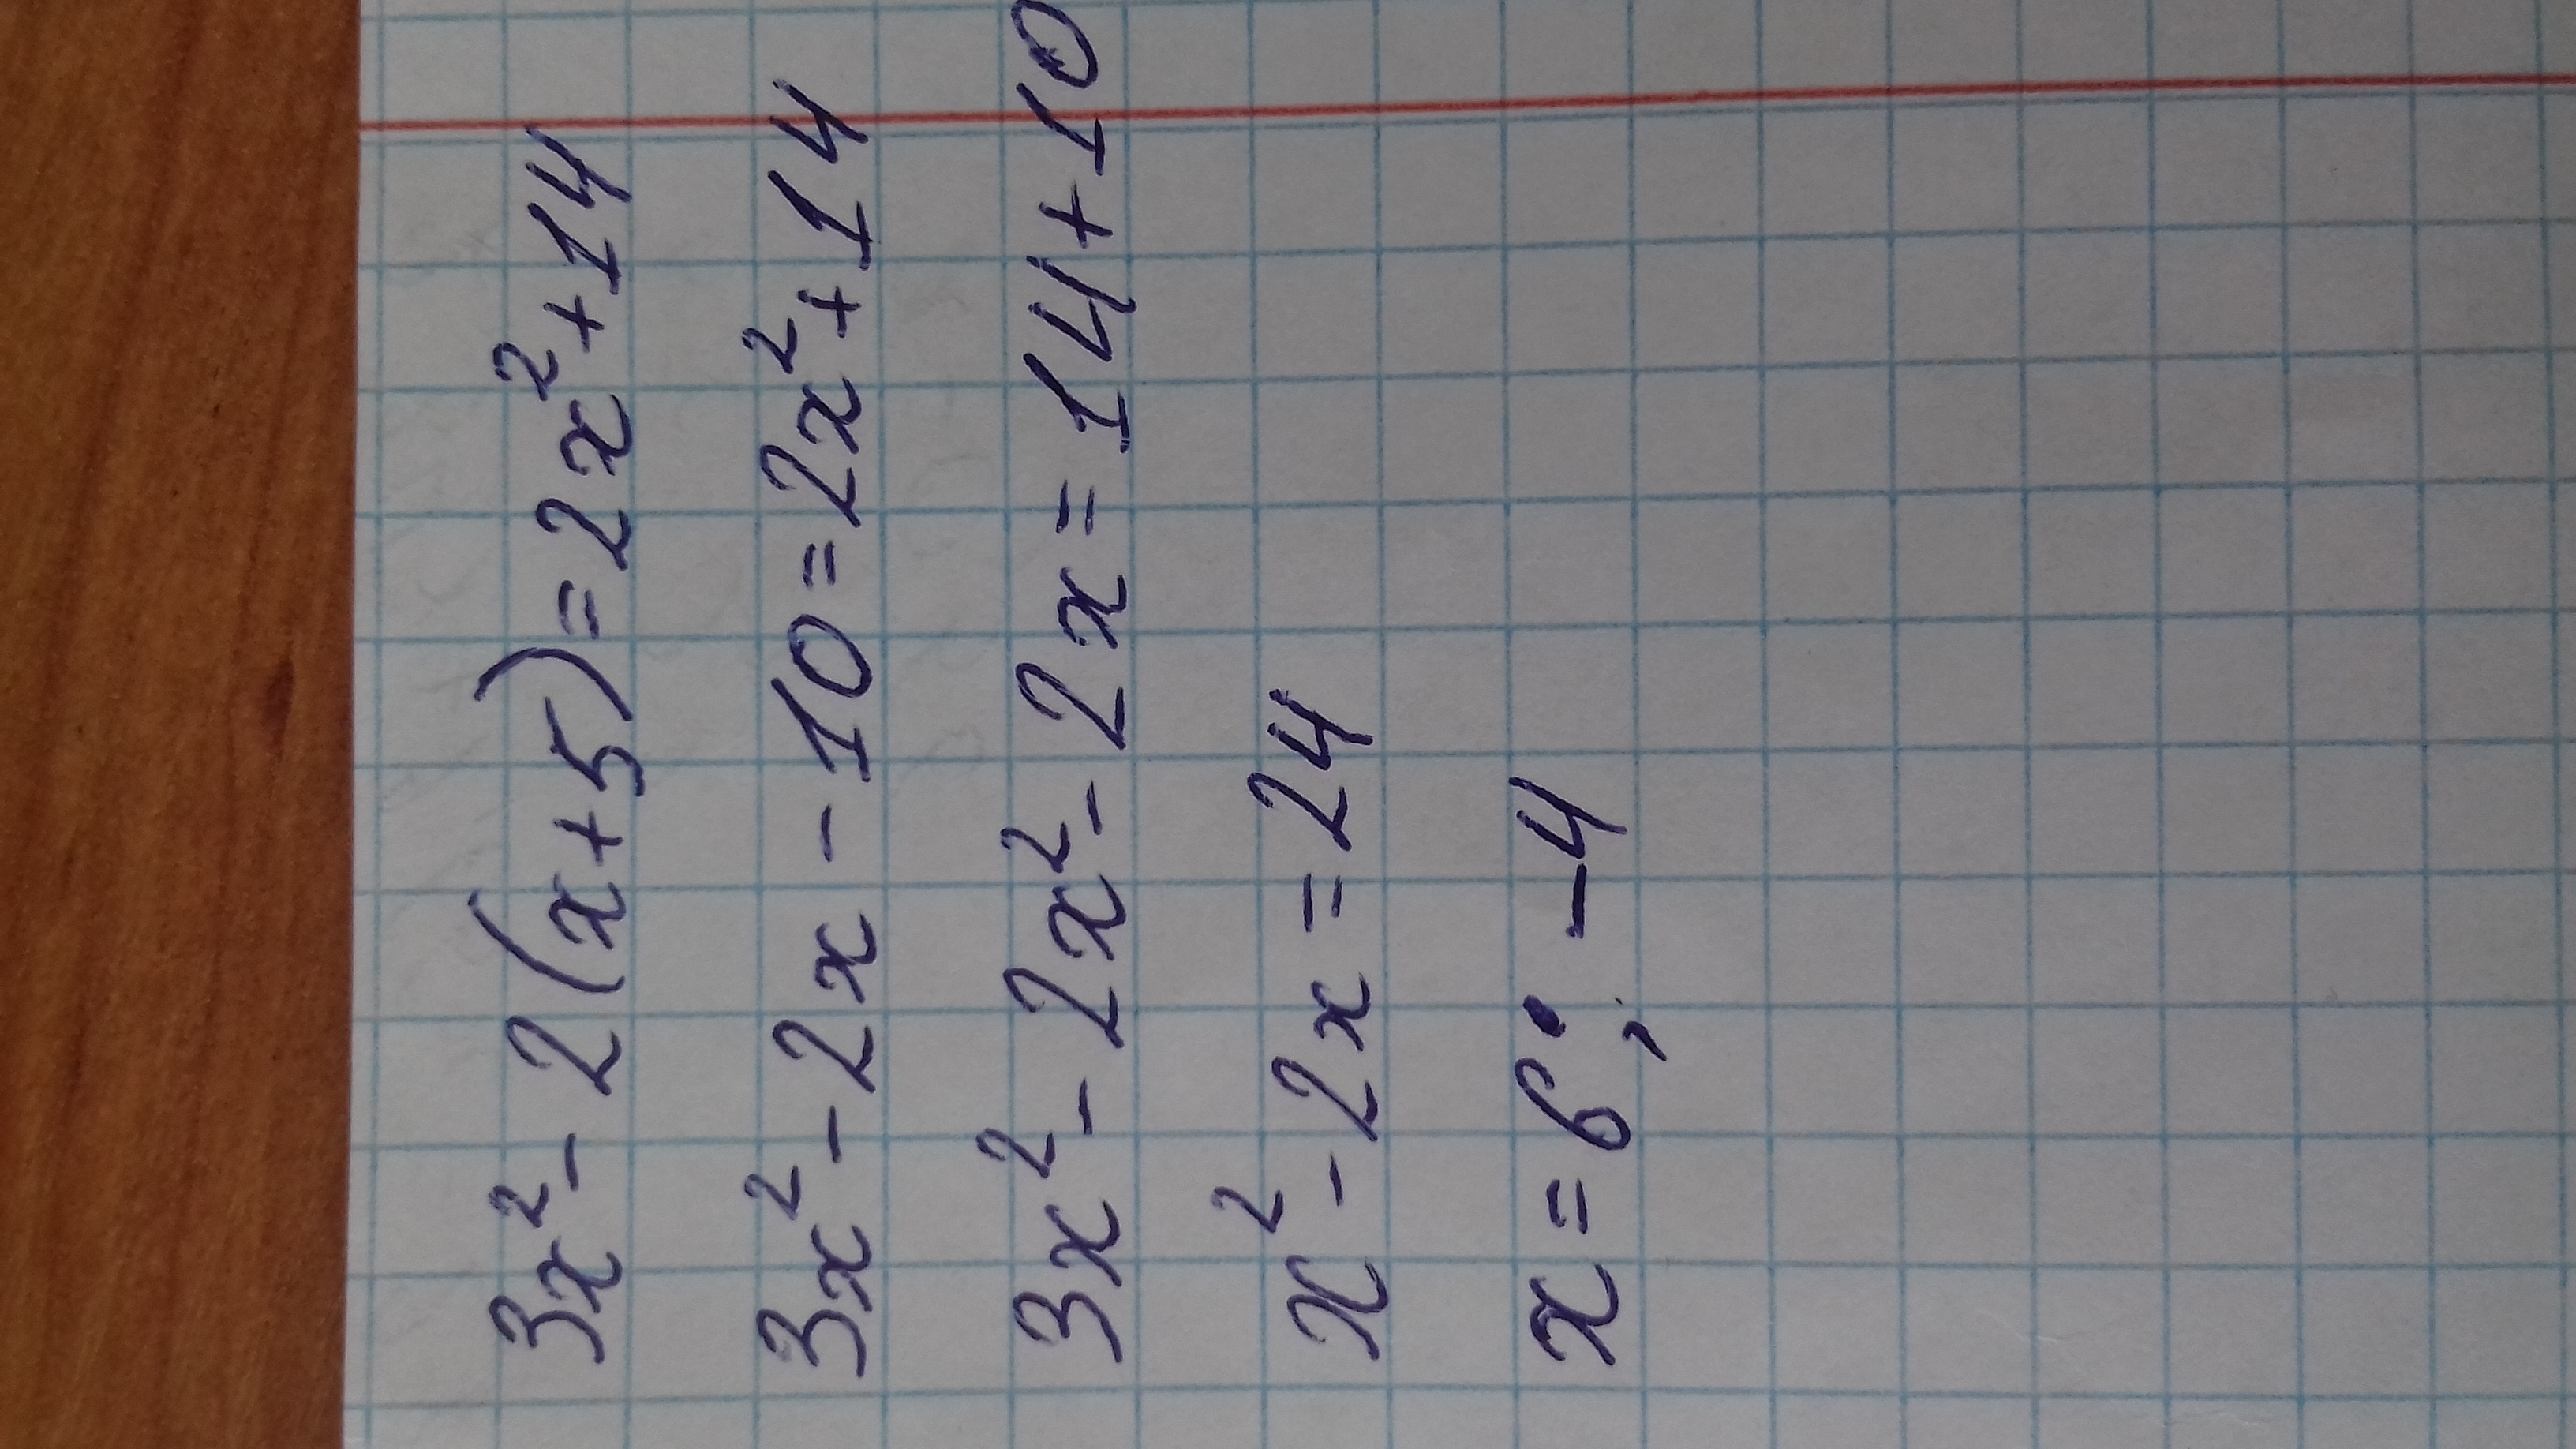 3x² - 2(x+5) = 2x² + 14
3x² - 2x - 10 = 2x² + 14
3x² - 2x² - 2x = 14 + 10
x² - 2x = 24
x = 6; -4